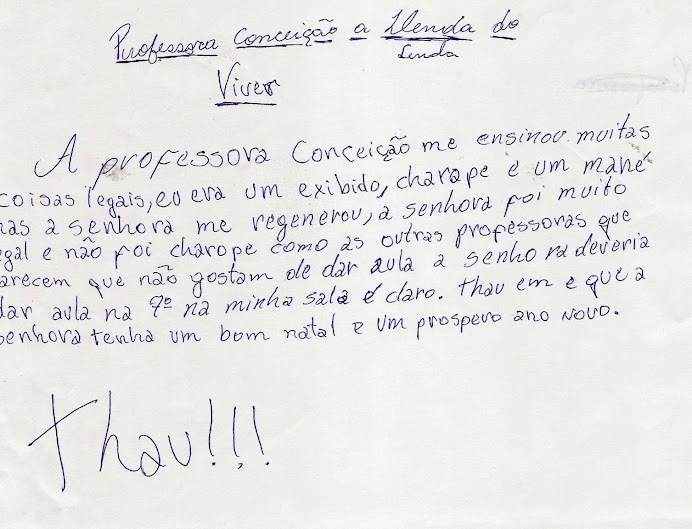 Professora Conceição a Llenda do
Lenda
Viver
A professora Conceição me ensinou muitas
coisas legais, eu era um exibido, charape e um mané
mas a senhora me regenerou, a senhora foi muito
egal e não foi charope como as outras professoras que
arecem que não gostam de dar aula a senhora deveria
dar aula na 9º na minha sala é claro. Thau em e que a
senhora tenha um bom natal e um prospero ano novo.
Thau!!!